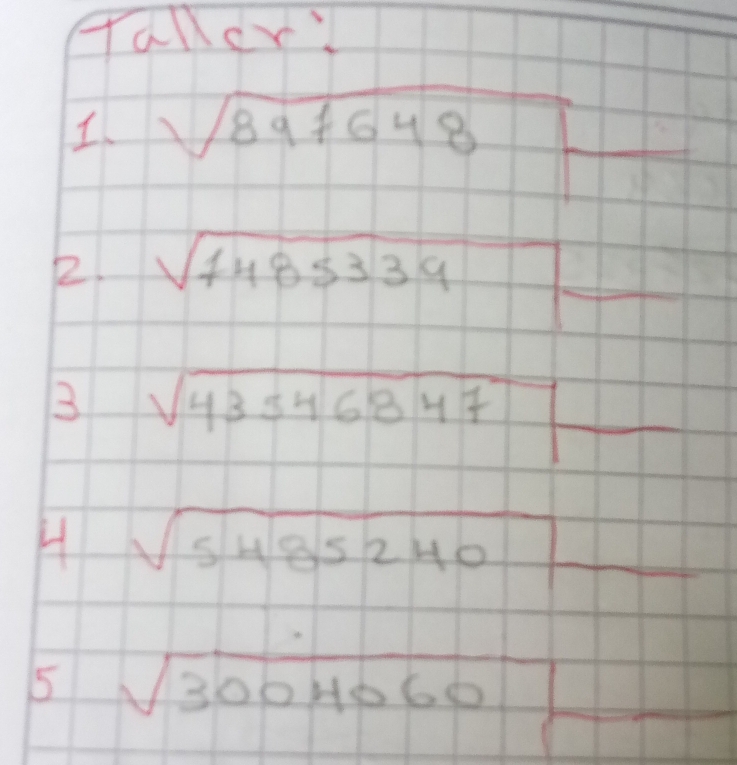 Taller:
1. √897648
2. √7485339
3 √43546847
4 √5485240
5 √3004060